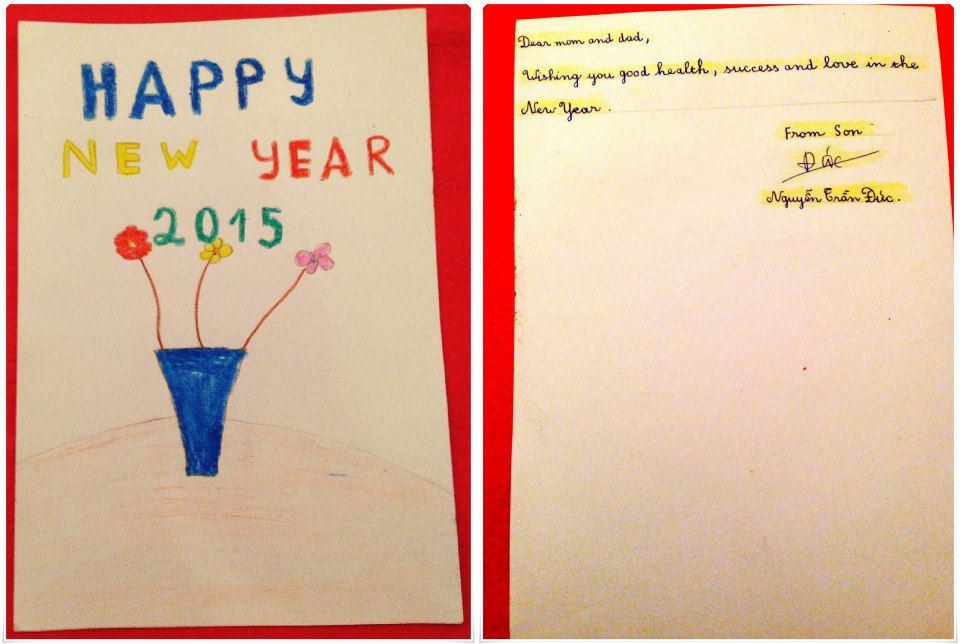 HAPPY
NEW YEAR
2015
Dear mom and dad,
Wishing you good health, success and love in the
New Year.
From Son
Đức
Nguyễn Trần Đức.